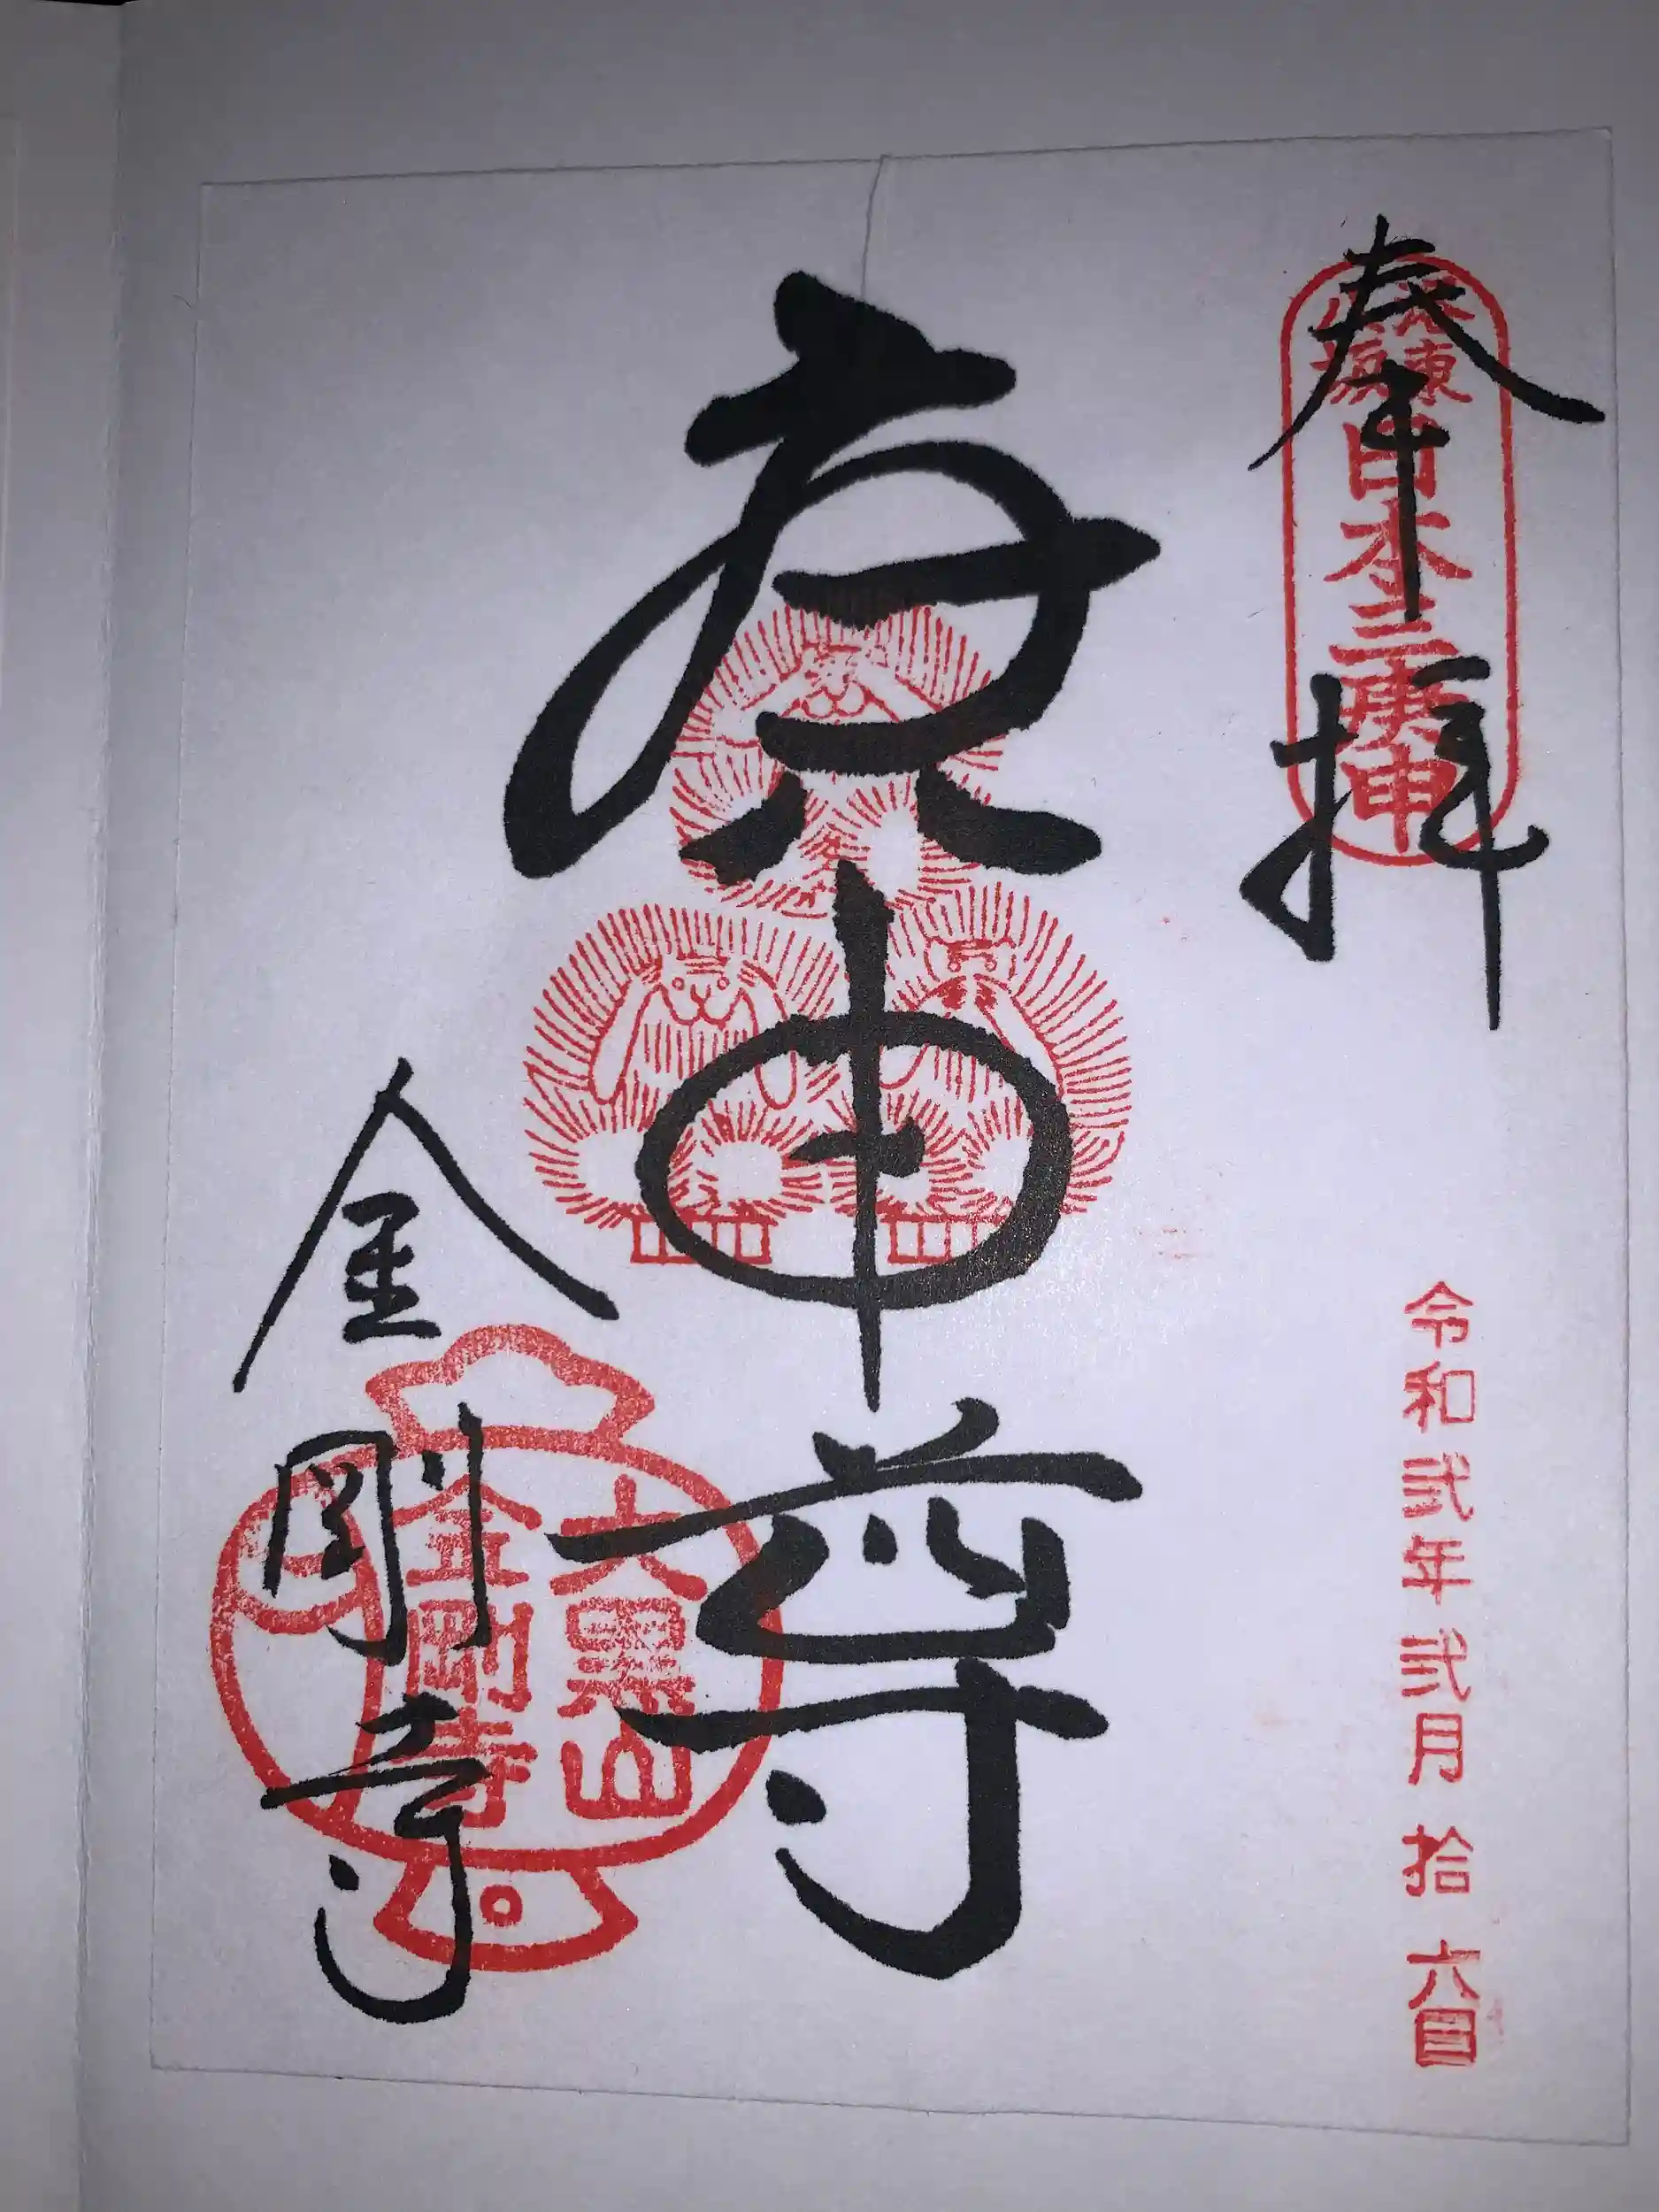 奉拝
洛東
八坂
日本三庚申
令和弐年弐月拾六日
庚申尊
金剛寺
大黒山
金剛寺